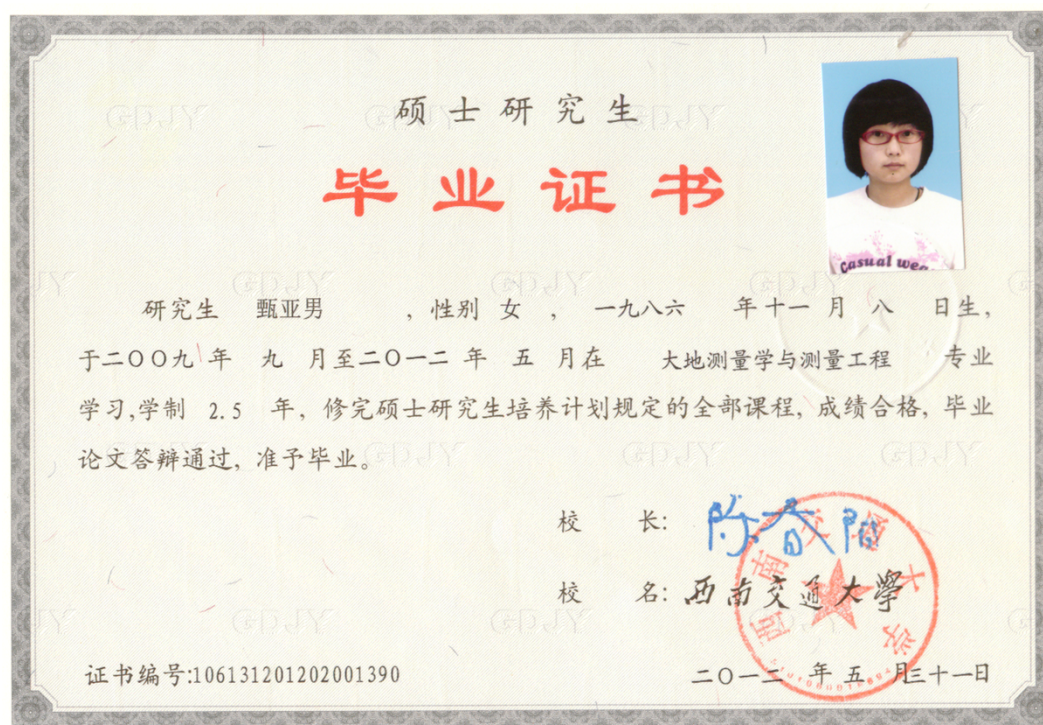 硕士研究生
毕业证书
Casual wea
研究生 甄亚男 ，性别 女 ， 一九八六 年十一 月 八 日生，
于二〇〇九 年 九 月至二〇一二 年 五 月在 大地测量学与测量工程 专业
学习,学制 2.5 年，修完硕士研究生培养计划规定的全部课程，成绩合格，毕业
论文答辩通过，准予毕业。
校 长: 陈春阳
校 名: 西南交通大學
西南交通大学
证书编号:106131201202001390
二〇一二 年 五 月三十一日
GDJY